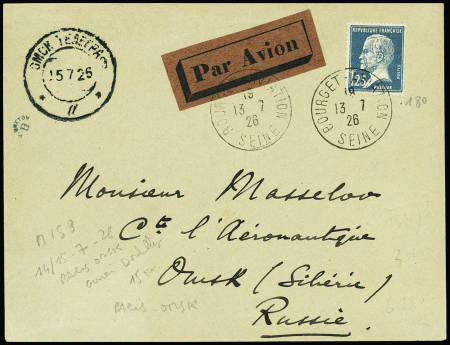 ОМСК ТЕЛЕГРАФ
15 7 26
Par Avion
RÉPUBLIQUE FRANÇAISE
POSTES
1F25
PASTEUR
BOURGET-AVIATION
13 7
26
SEINE
BOURGET-AVIATION
18
13 7
26
SEINE
180
Monsieur Masselov
Cte l'Aéronautique
Omsk (Sibérie)
Russie
14/15-7-26
PARIS-OMSK